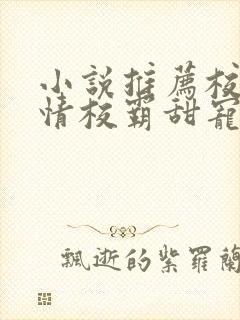 小説推薦校
情校霸甜寵
飄逝的紫羅蘭